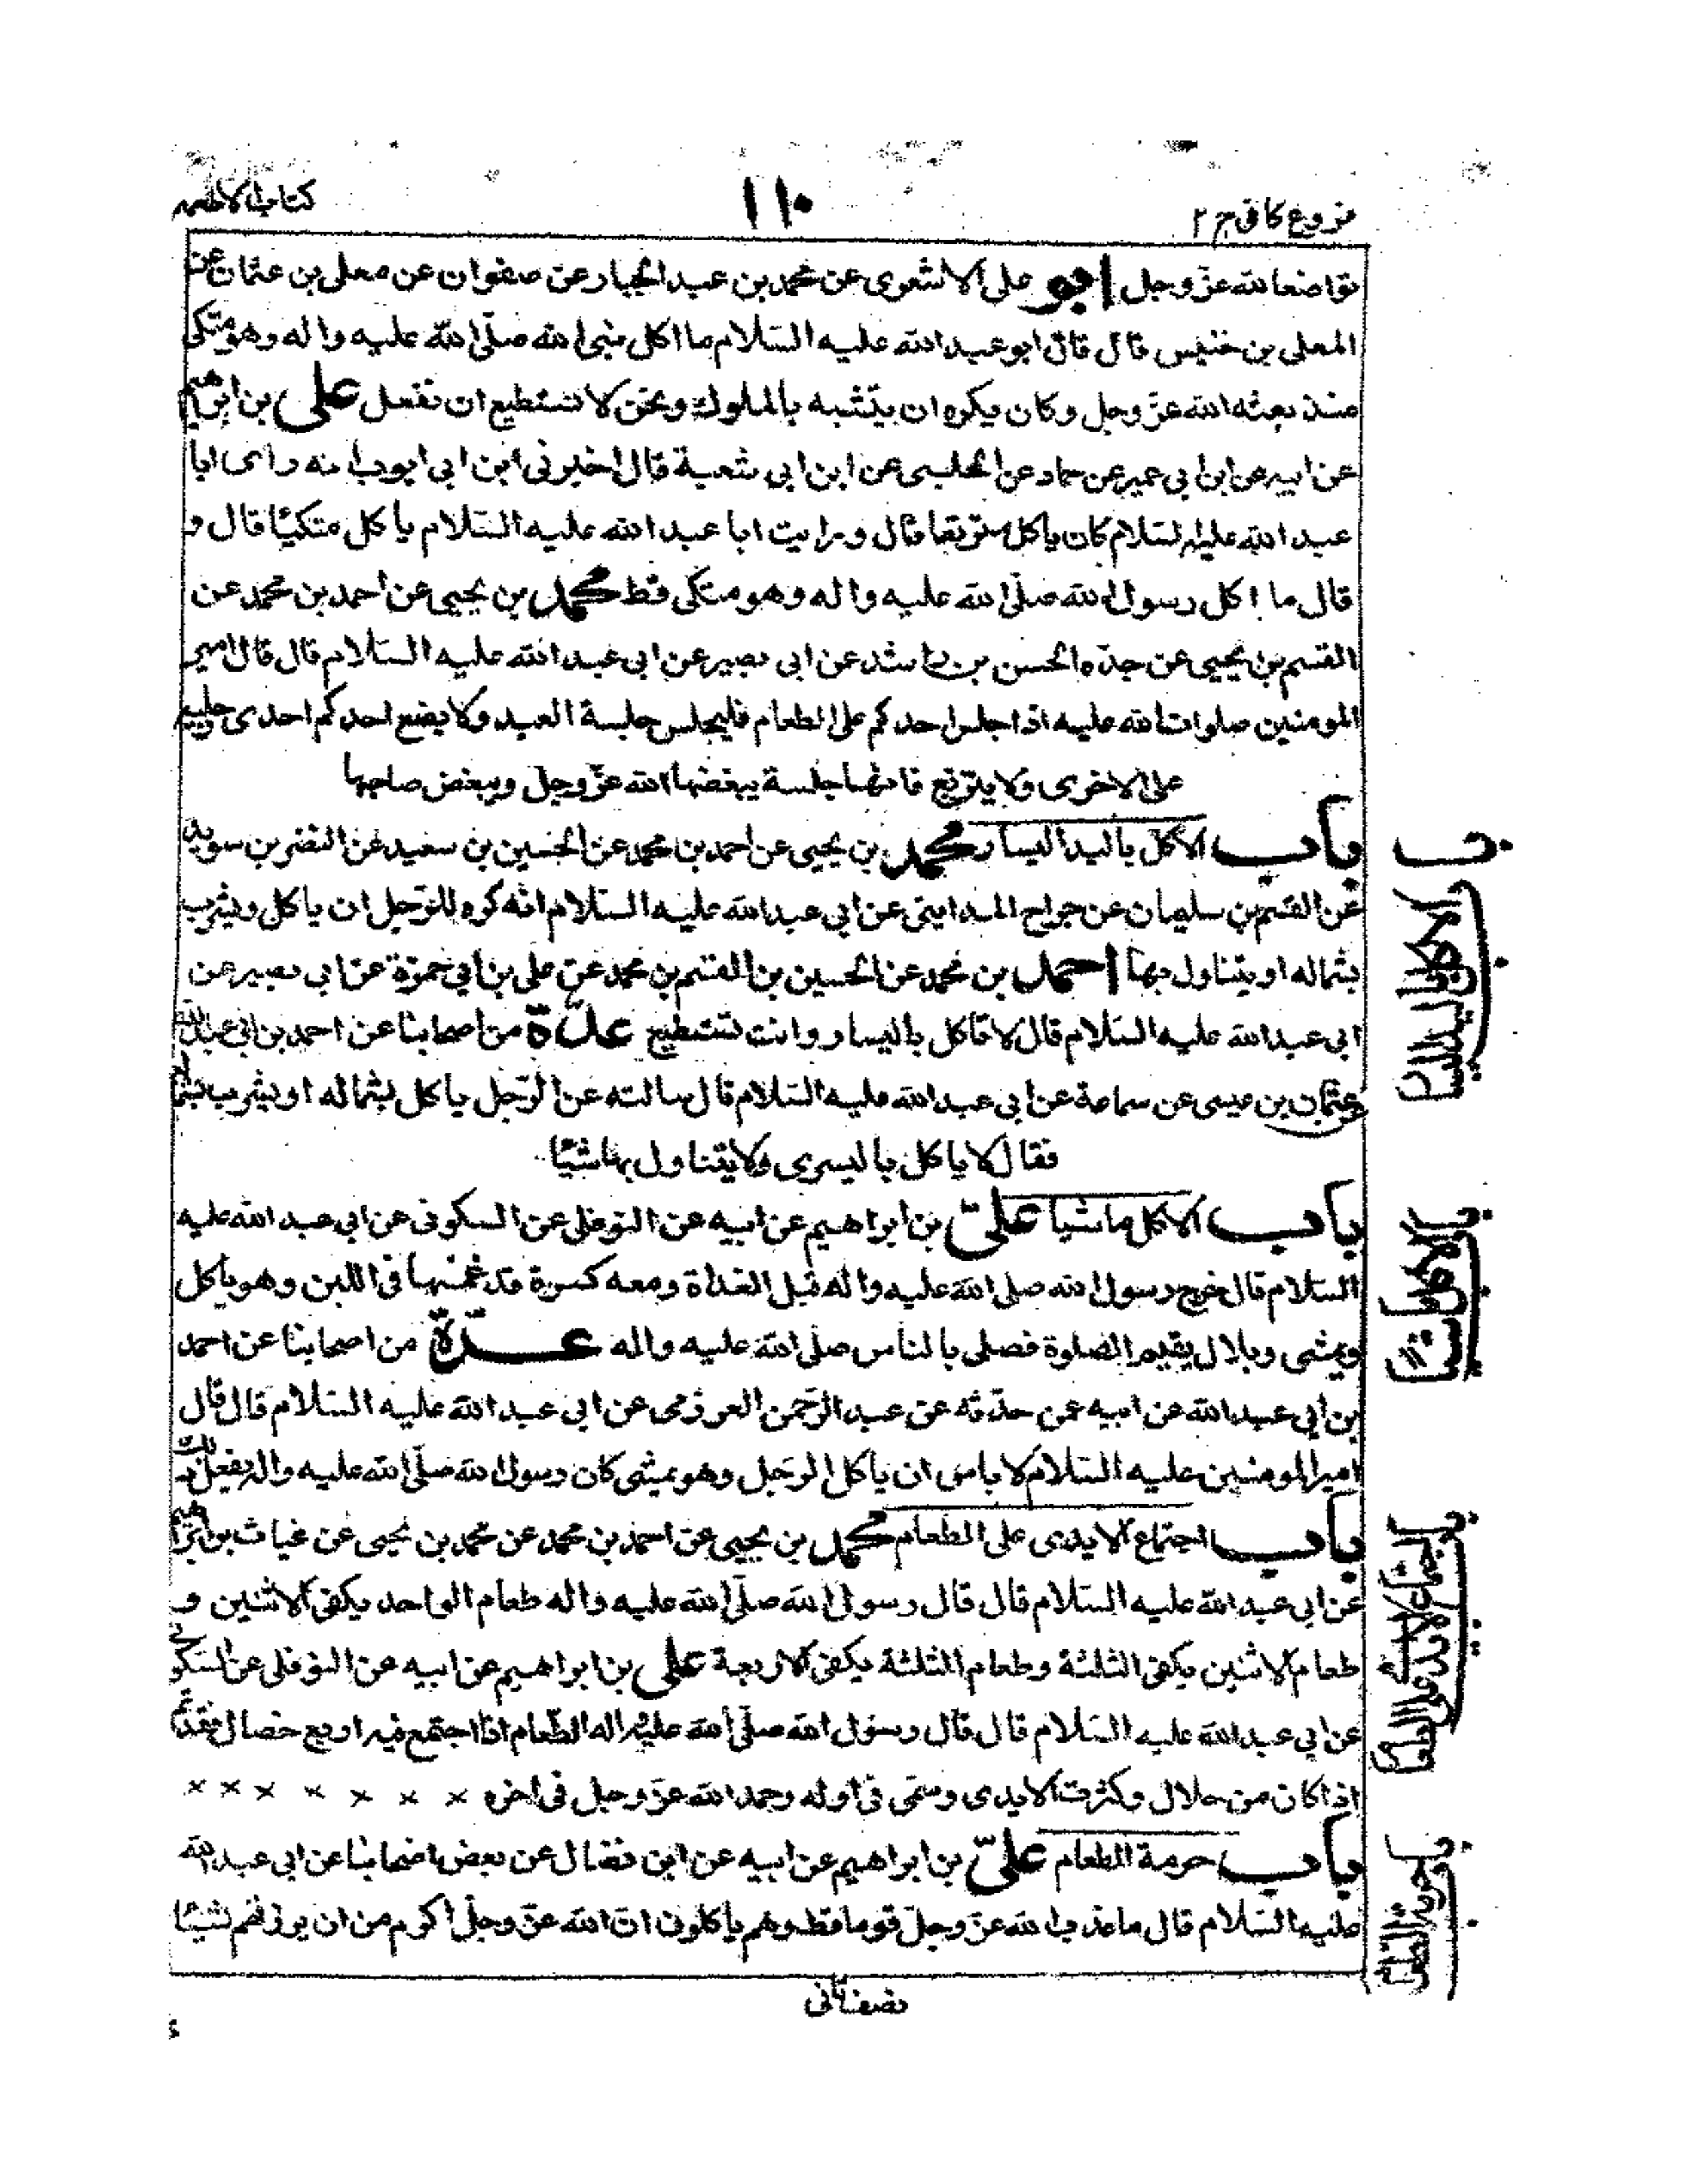 فروع كافى ج ٢
١١٠
كتاب الاطعمه
تواضعا لله عزّ وجل ابو على الاشعرى عن محمد بن عبد الجبار عن صفوان عن معلى بن عثمان عن
المعلى بن خنيس قال قال ابو عبد الله عليه السّلام ما اكل نبى الله صلّى الله عليه واله وهو متكى
منذ بعثه الله عزّ وجل وكان يكره ان يتشبه بالملوك ونحن لا نستطيع ان نفعل على بن ابرهيم
عن ابيه عن ابن ابي عمير عن حماد عن الحلبى عن ابن ابى شعبة قال اخبرنى ابن ابى ايوب انه راى ابا
عبد الله عليه السّلام كان ياكل متربّعا قال ورايت ابا عبد الله عليه السّلام ياكل متكيًا قال و
قال ما اكل رسول الله صلّى الله عليه واله وهو متكى قط محمد بن يحيى عن احمد بن محمد عن
القسم بن يحيى عن جدّه الحسن بن راشد عن ابى بصير عن ابى عبد الله عليه السّلام قال قال امير
المومنين صلوات الله عليه اذا جلس احدكم على الطعام فليجلس جلسة العبد ولا يضع احدكم احدى رجليه
على الاخرى ولا يتربّع فانها جلسة يبغضها الله عزّ وجلّ ويبغض صاحبها
باب الاكل باليد اليسار محمد بن يحيى عن احمد بن محمد عن الحسين بن سعيد عن النضر بن سويد
عن القسم بن سليمان عن جراح المداينى عن ابي عبد الله عليه السّلام انّه كره للرّجل ان ياكل ويشرب
بشماله او يتناول بها احمد بن محمد عن الحسين بن القسم بن محمد عن على بن ابي حمزة عن ابي بصير عن
ابى عبد الله عليه السّلام قال لا تاكل باليسار وانت تستطيع عدّة من اصحابنا عن احمد بن ابي عبد الله
عثمان بن عيسى عن سماعة عن ابي عبد الله عليه السّلام قال سالته عن الرّجل ياكل بشماله او يشرب بها
فقال لا ياكل باليسرى ولا يتناول بها شيئًا
باب الاكل ماشيا علىّ بن ابراهيم عن ابيه عن النوفلى عن السكونى عن ابي عبد الله عليه
السّلام قال خرج رسول الله صلى الله عليه واله قبل الغداة ومعه كسرة قد غمسها فى اللبن وهو ياكل
ويمشى وبلال يقيم الصلوة فصلى بالناس صلّى الله عليه واله عدّة من اصحابنا عن احمد
بن ابي عبد الله عن ابيه عمن حدّثه عن عبد الرّحمن العرزمى عن ابي عبد الله عليه السّلام قال قال
امير المومنين عليه السّلام لا باس ان ياكل الرجل وهو يمشى كان رسول الله صلّى الله عليه واله يفعل ذلك
باب اجتماع الايدى على الطعام محمد بن يحيى عن احمد بن محمد عن محمد بن يحيى عن غياث بن ابرهيم
عن ابي عبد الله عليه السّلام قال قال رسول الله صلّى الله عليه واله طعام الواحد يكفى الاثنين و
طعام الاثنين يكفى الثلثة وطعام الثلثة يكفى الاربعة على بن ابراهيم عن ابيه عن النوفلى عن السكونى
عن ابي عبد الله عليه السّلام قال قال رسول الله صلّى الله عليه واله الطّعام اذا اجتمع فيه اربع خصال فقد تم
اذا كان من حلال وكثرت الايدى وسمّى فى اوله وحمد الله عزّ وجل فى اخره × × × × × × ×
باب حرمة الطعام علىّ بن ابراهيم عن ابيه عن ابن فضال عن بعض اصحابنا عن ابي عبد الله
عليه السّلام قال ما عذب الله عزّ وجلّ قوما قط وهم ياكلون انّ الله عزّ وجلّ اكرم من ان يرزقهم شيئًا
نصف ثانى
باب الاكل باليد اليسار
باب الاكل ماشيا
باب اجتماع الايدى على الطعام
باب حرمة الطعام